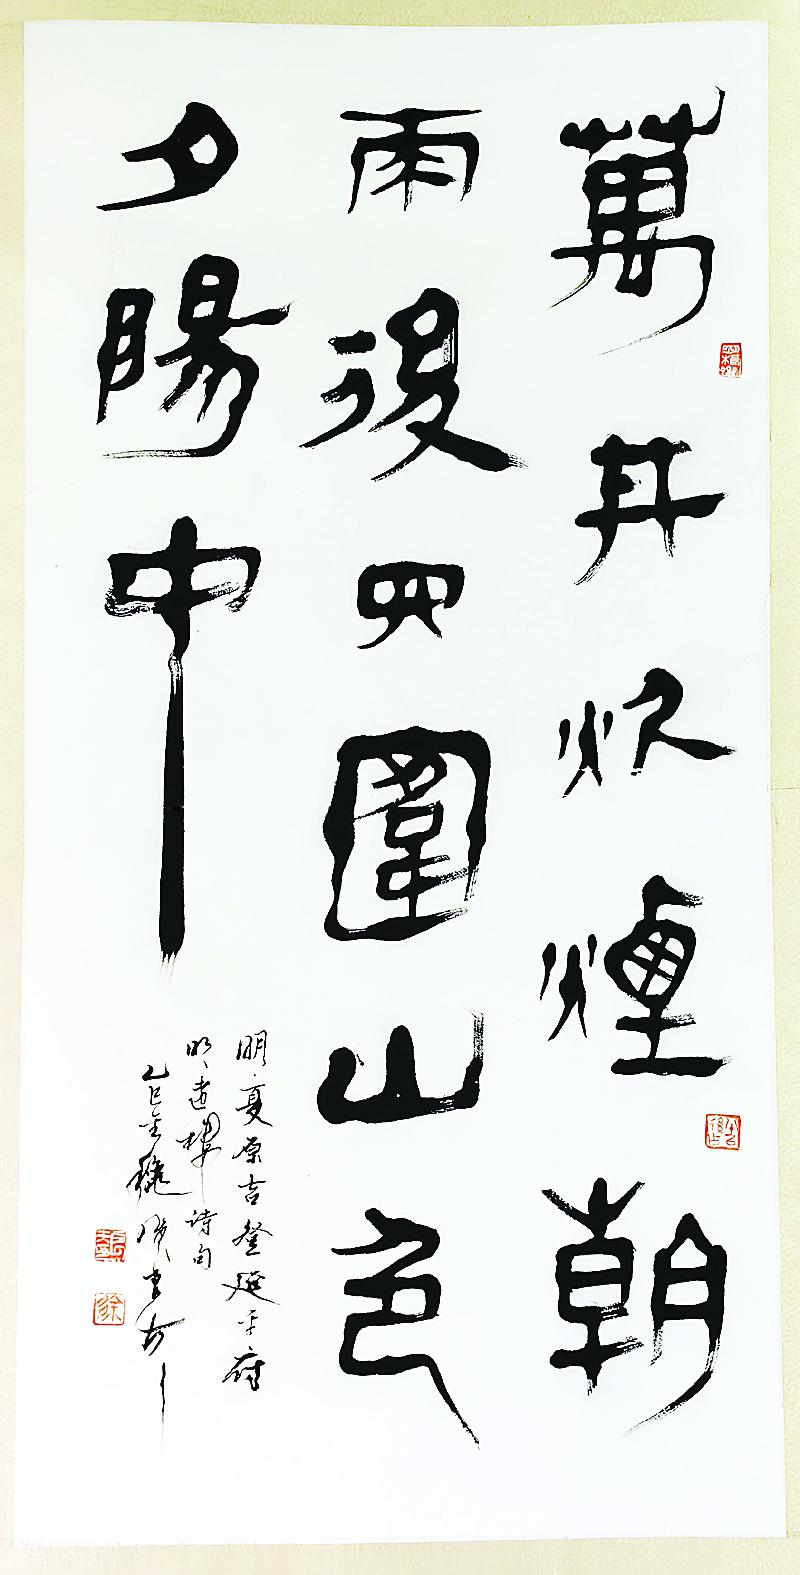 萬井炊煙朝
雨後四圍山色
夕陽中
明·夏原吉登延平府
明遠樓诗句
乙巳金穐